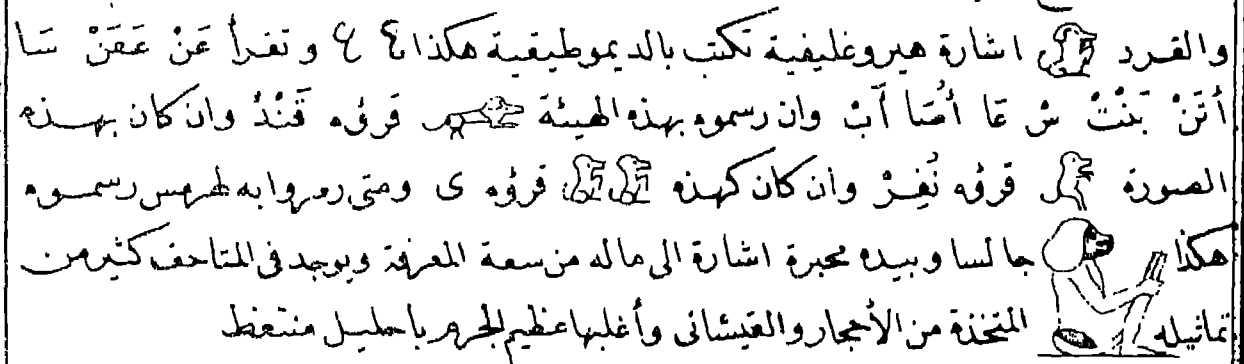 والقرد اشارة هيروغليفية تكتب بالديموطيقية هكذا وتقرأ عَنْ عَقَنْ سَا
أَتَنْ بَنْتْ شْ عَا أُمْتَا آبْ وان رسموه بهذه الهيئة قرؤه قَنْدُ وان كان بهذه
الصورة قرؤه نُفِرْ وان كان كهذه قرؤه ى ومتى رمزوا به لهرمس رسموه
هكذا جالسا وبيده محبرة اشارة الى ماله من سعة المعرفة ويوجد فى المتاحف كثير من
تماثيله المتخذة من الأحجار والقيشانى وأغلبها عظيم الجرم باحليل منتعظ